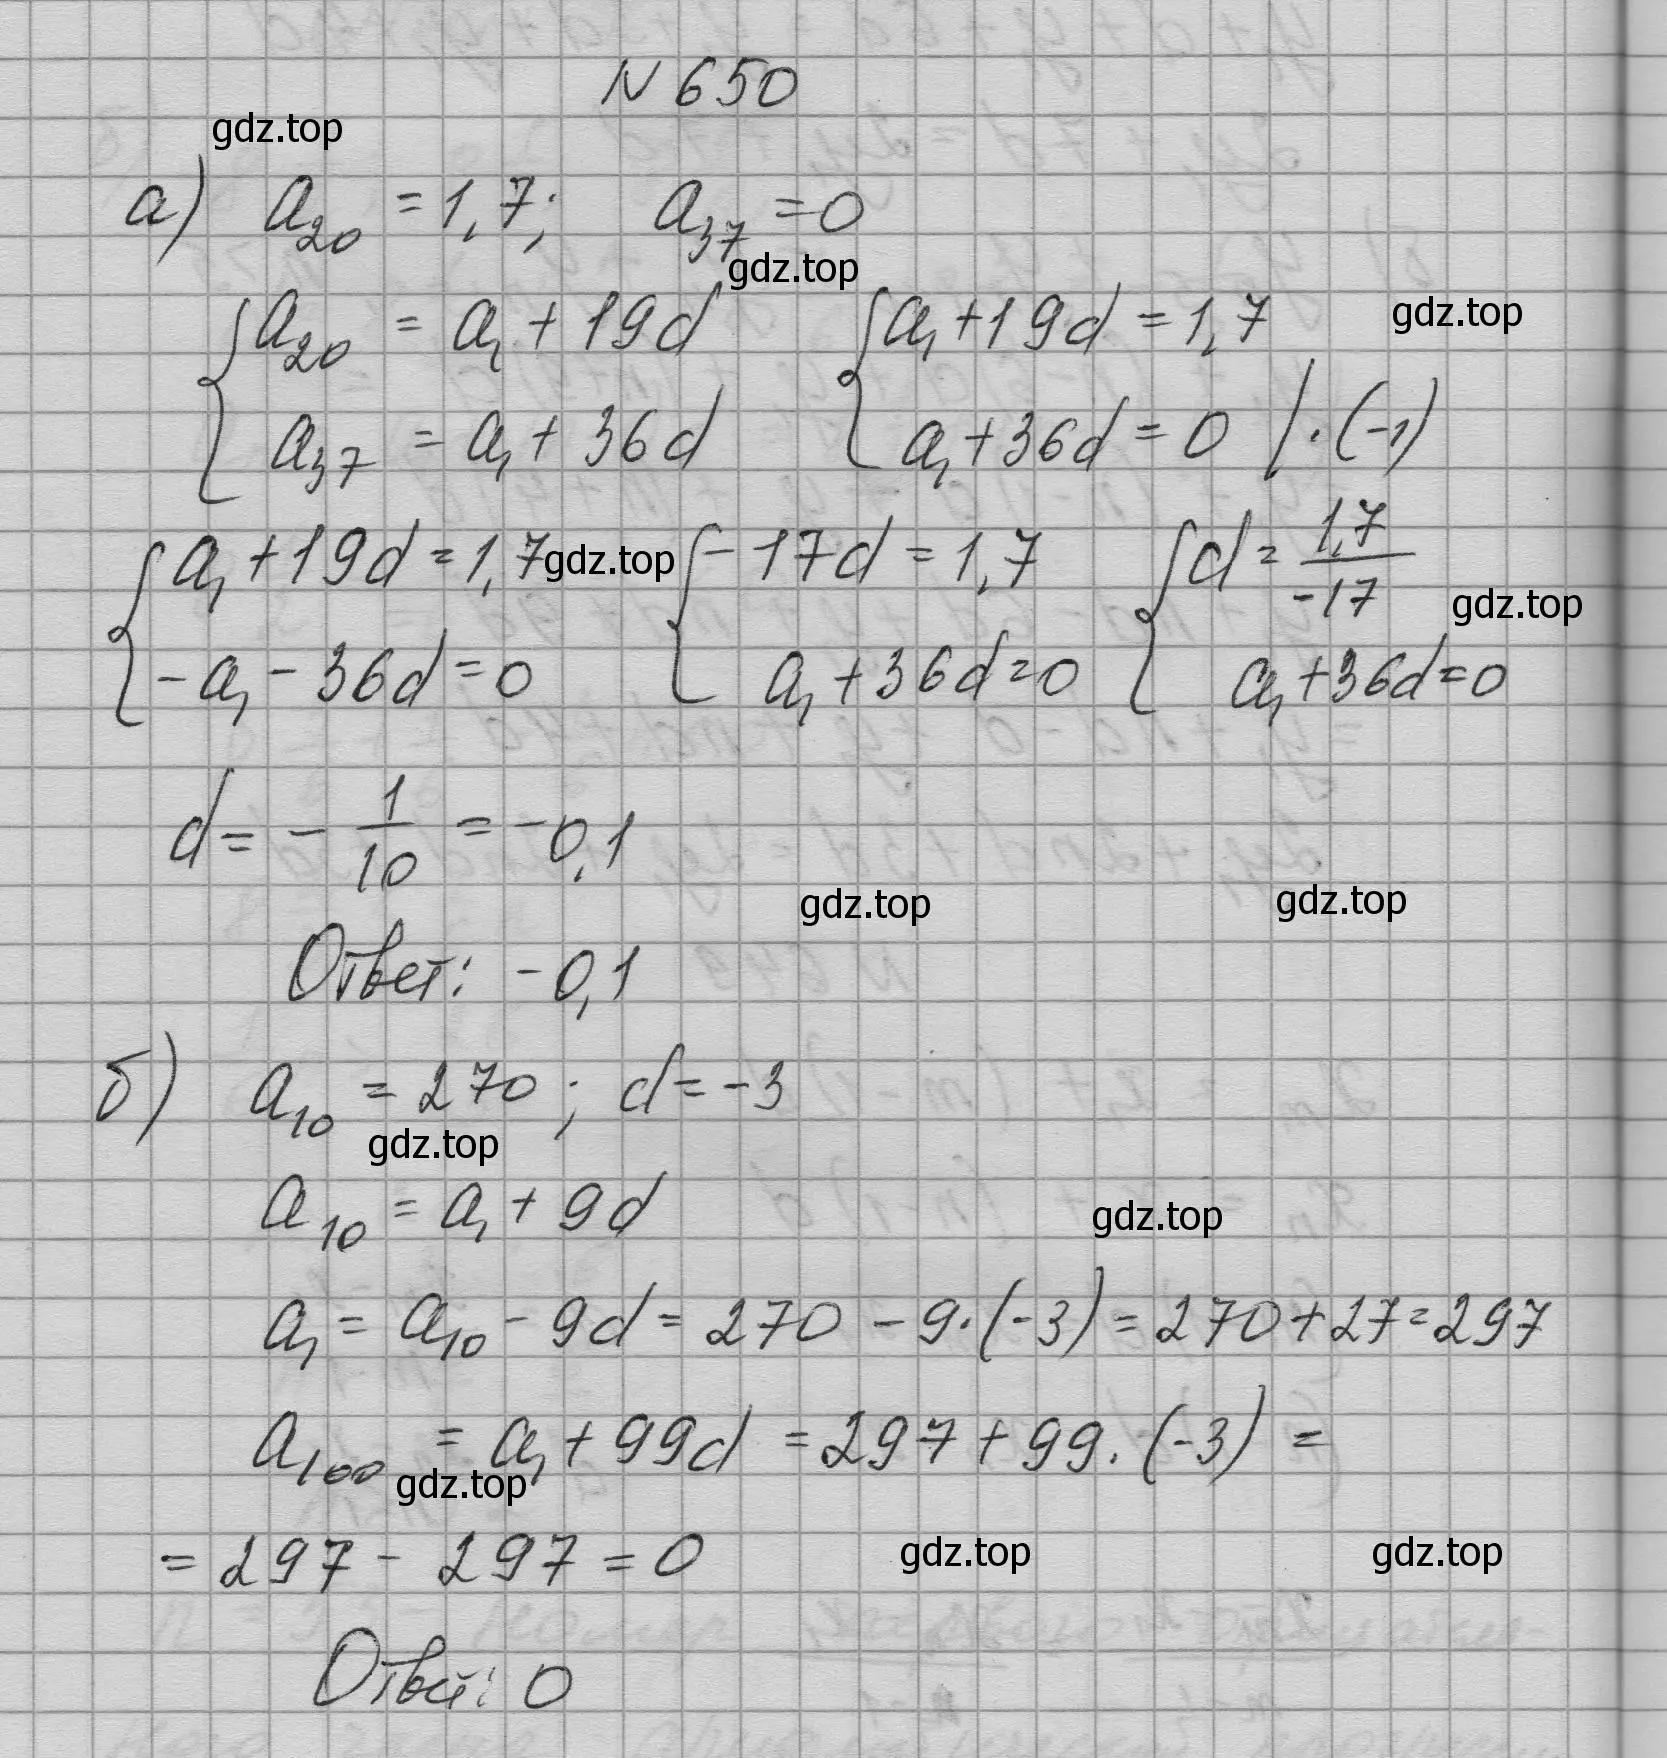 N 650
gdz.top
а) a₂₀ = 1,7; a₃₇ = 0
gdz.top
{ a₂₀ = a₁ + 19d { a₁ + 19d = 1,7 gdz.top
a₃₇ = a₁ + 36d a₁ + 36d = 0 | · (-1)
{ a₁ + 19d = 1,7 gdz.top { -17d = 1,7 { d = 1,7/-17 gdz.top
-a₁ - 36d = 0 a₁ + 36d = 0 a₁ + 36d = 0
d = - 1/10 = -0,1
gdz.top gdz.top
Ответ: -0,1
б) a₁₀ = 270; d = -3
gdz.top
a₁₀ = a₁ + 9d gdz.top
a₁ = a₁₀ - 9d = 270 - 9·(-3) = 270 + 27 = 297
a₁₀₀ = a₁ + 99d = 297 + 99·(-3) =
gdz.top
= 297 - 297 = 0 gdz.top gdz.top
Ответ: 0